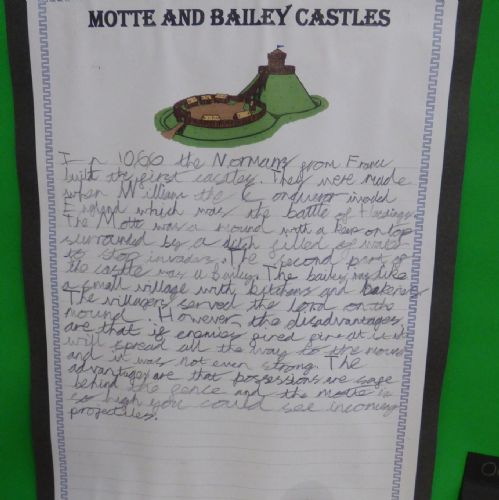 MOTTE AND BAILEY CASTLES
In 1066 the Normans from France
built the first castles. They were made
when William the Conqueror invaded
England which was the battle of Hastings.
The Motte was a mound with a keep on top
surrounded by a ditch filled of water
to stop invaders. The second part of
the castle was a Bailey. The bailey was like
a small village with kitchens and bakeries.
The villagers served the lord on the
mound. However, the disadvantages,
are that if enemies fired fire at it it
will spread all the way to the mound
and it was not even strong. The
advantages are that possessions are safe
behind the fence and the motte is
so high you could see incoming
projectiles.